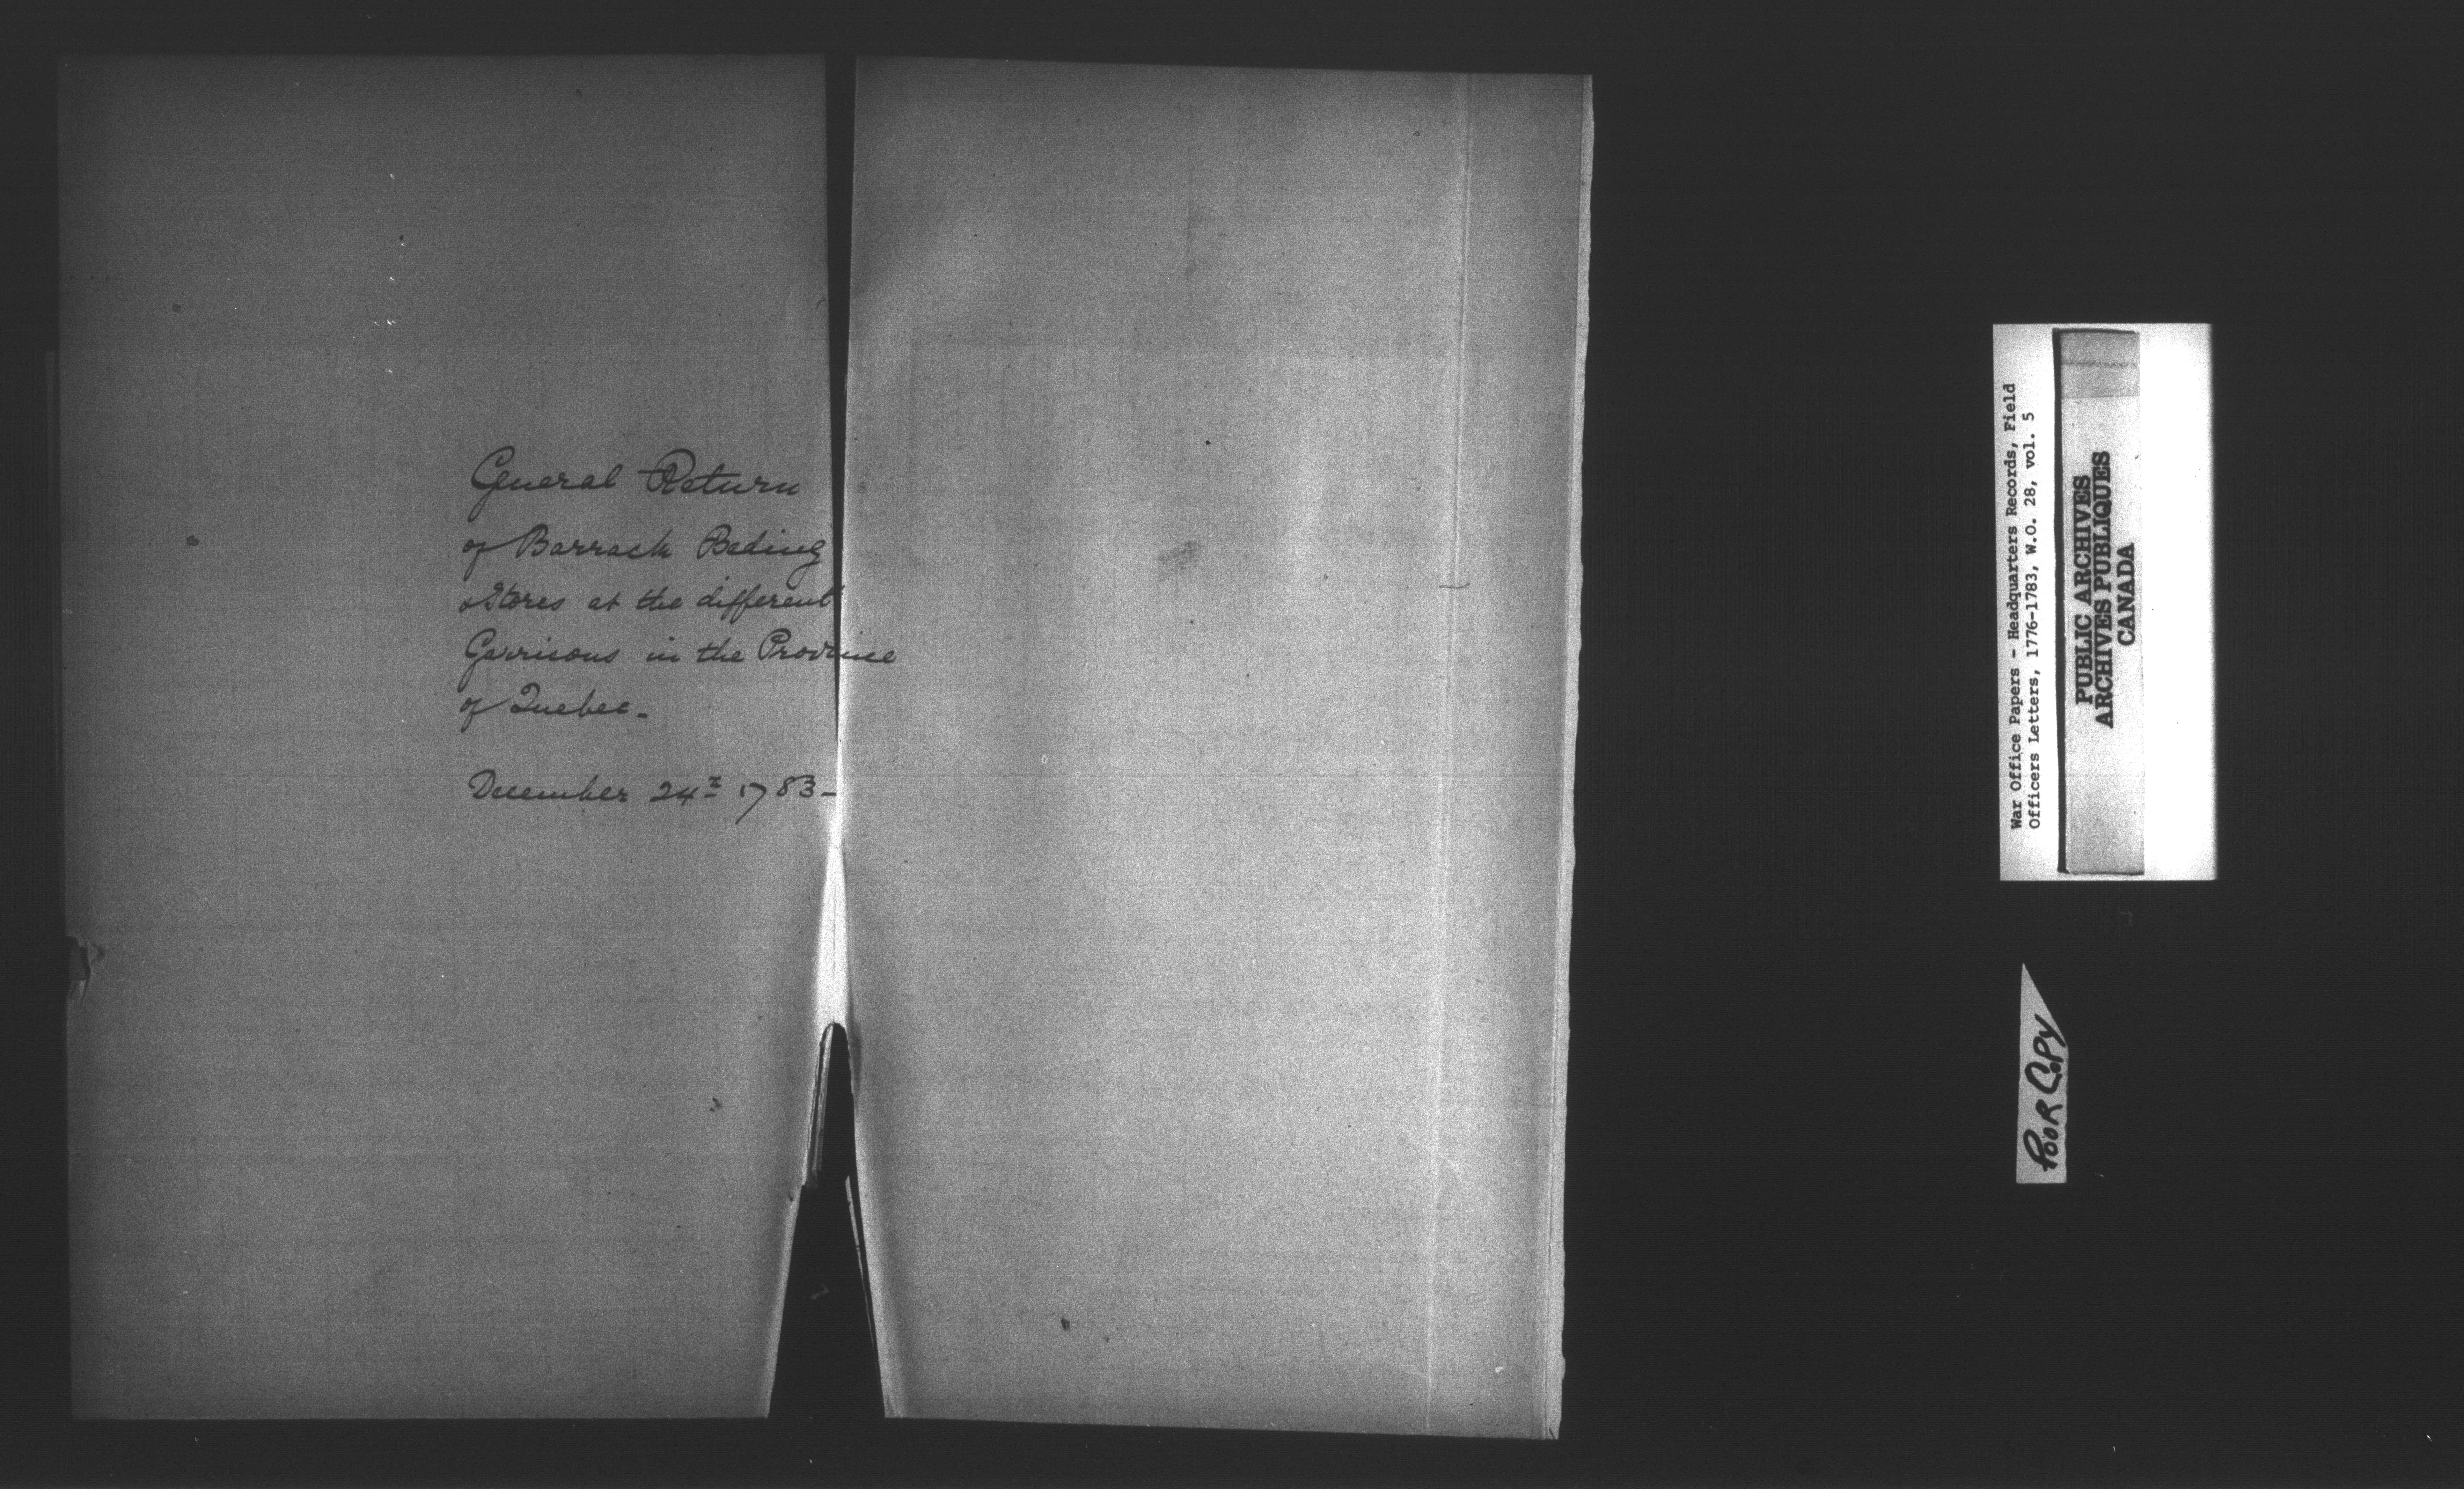 General Return
of Barrack Beding
& Stores at the different
Garrisons in the Province
of Quebec.
December 24th 1783-
War Office Papers - Headquarters Records, Field
Officers Letters, 1776-1783, W.O. 28, vol. 5
PUBLIC ARCHIVES
ARCHIVES PUBLIQUES
CANADA
POOR COPY